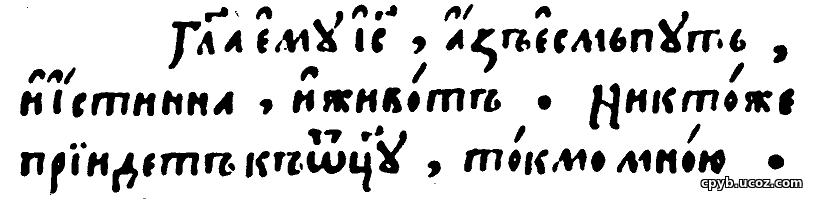 Гл҃а є҆мꙋ̀ і҆и҃съ , а҆́зъ є҆смь пꙋть ,
и҆ и҆́стинна , и҆ живо́тъ . Никто́же
прїидетъ къ ѿц꙽ꙋ̀ , то́кмо мно́ю .
cpyb.ucoz.com